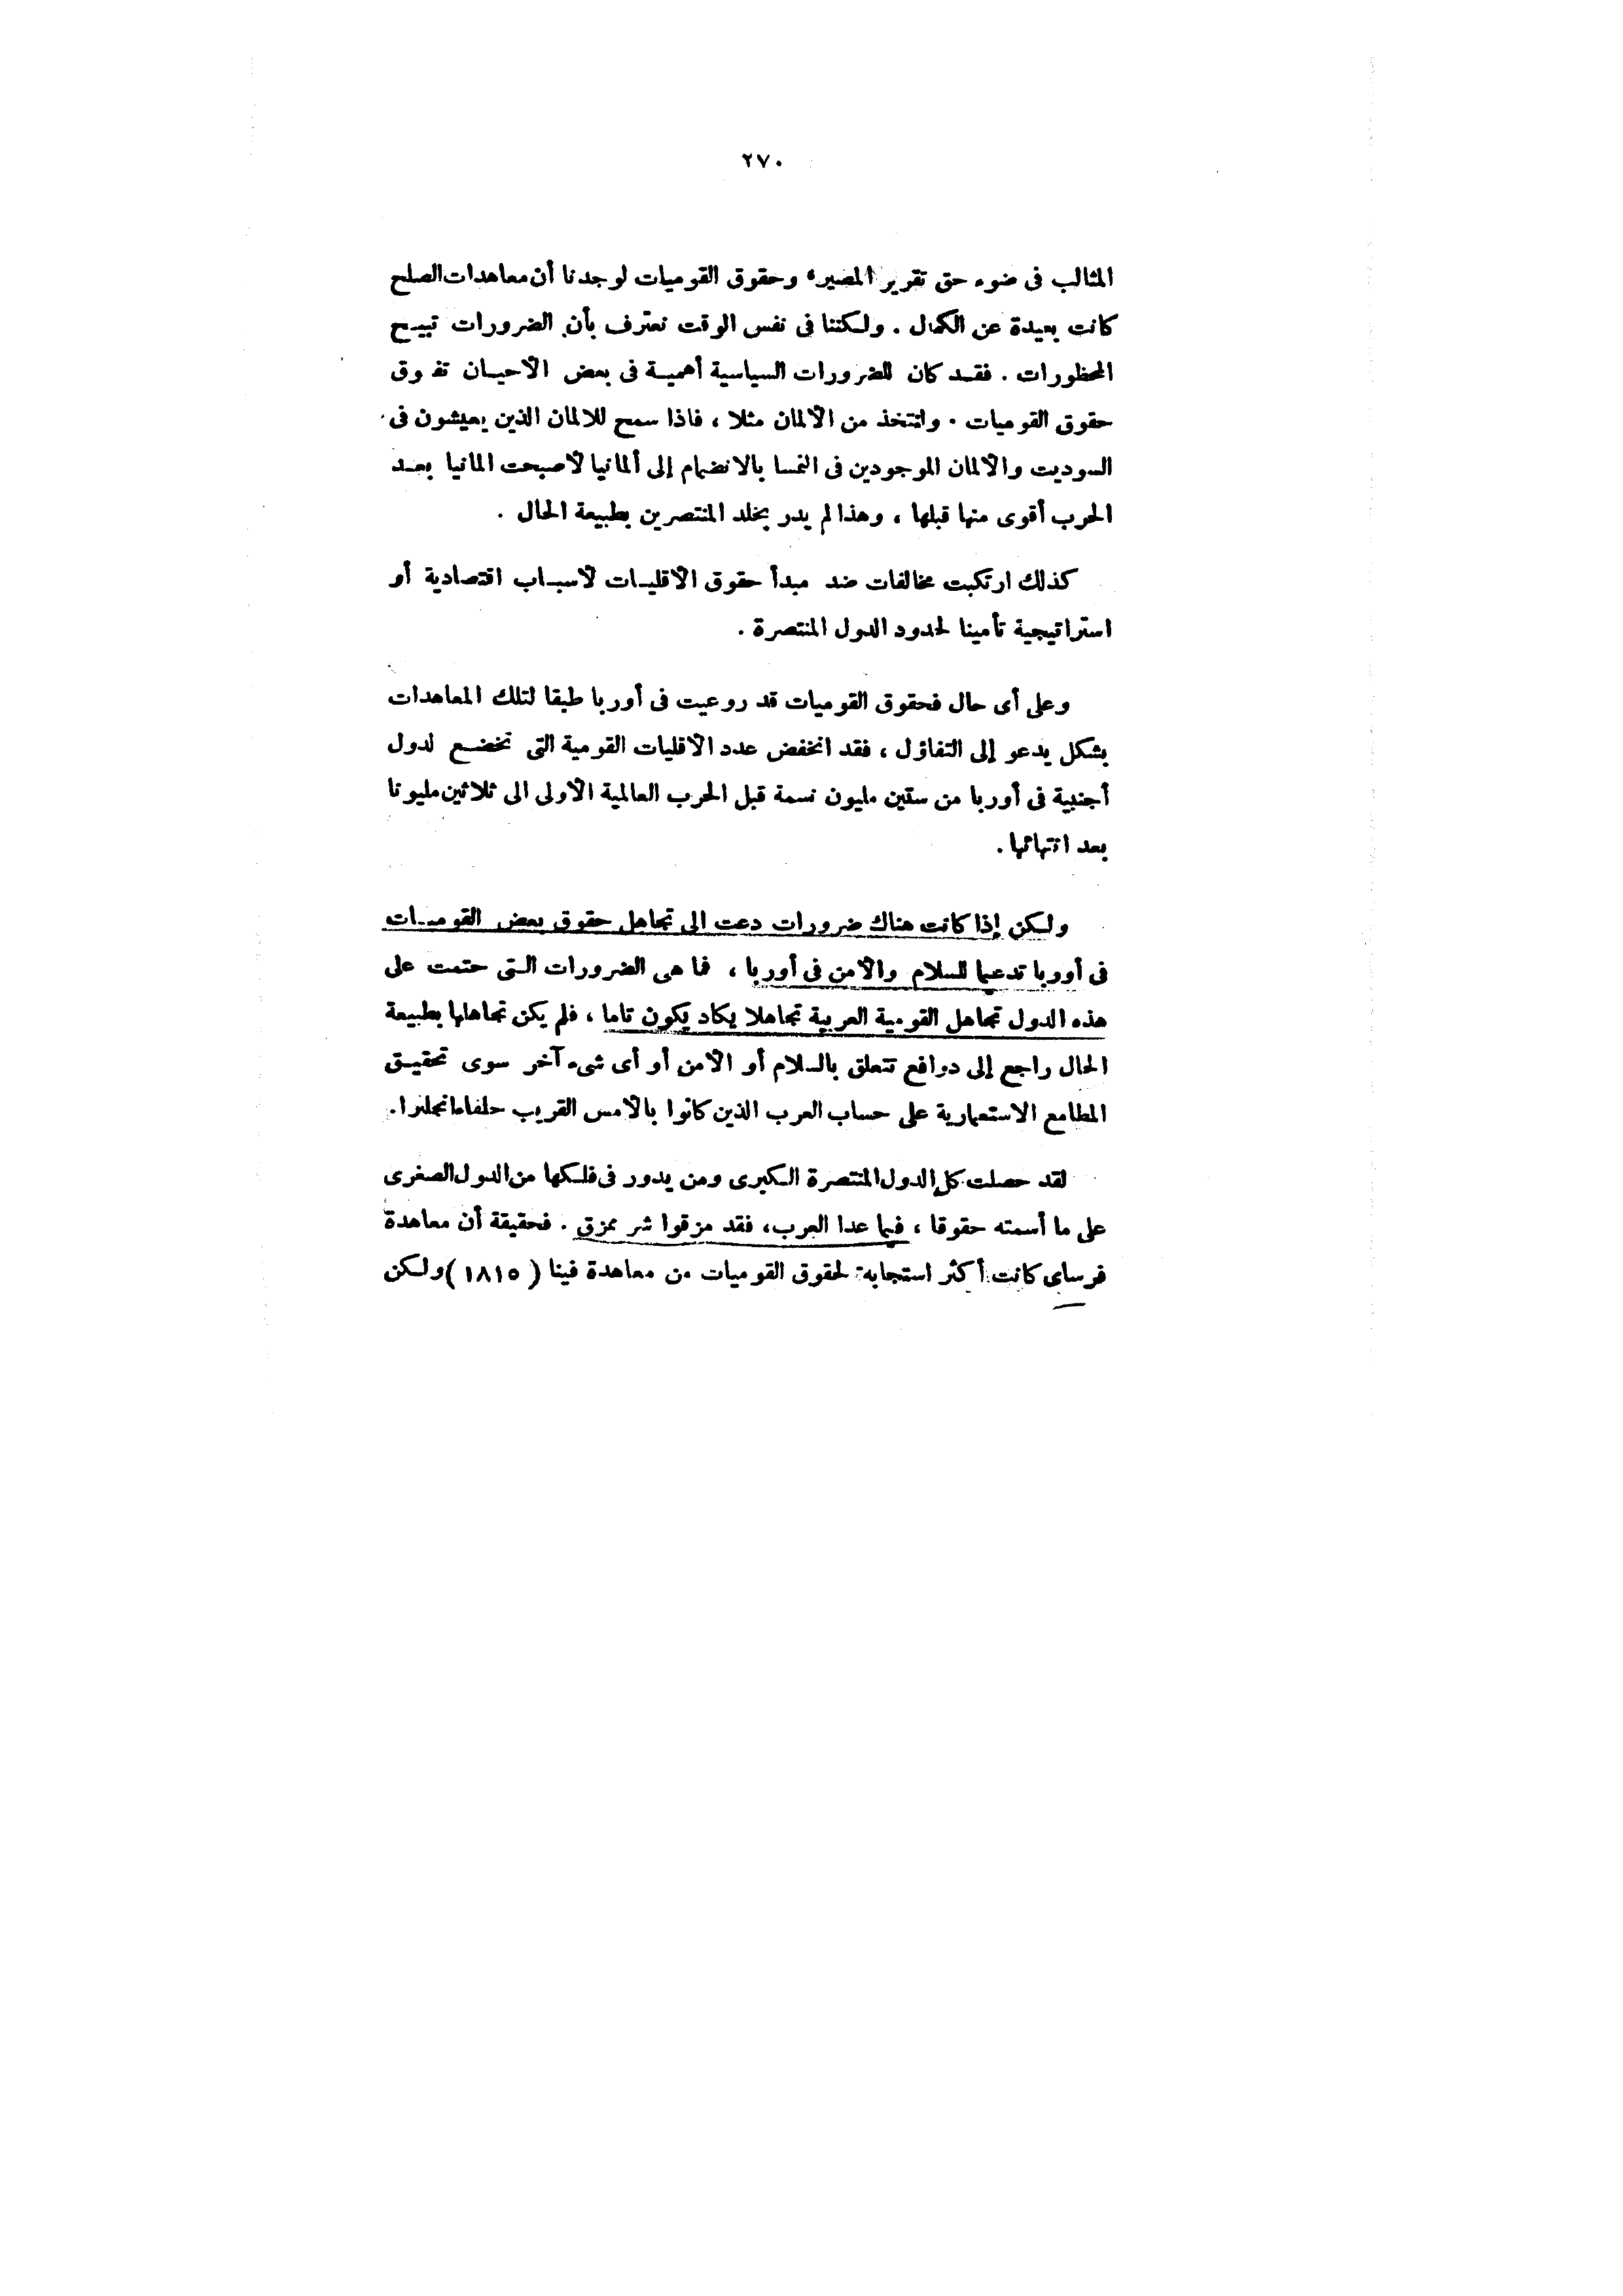 ٢٧٠
المثالب فى ضوء حق تقرير المصير، وحقوق القوميات لوجدنا أن معاهدات الصلح
كانت بعيدة عن الكمال . ولكننا فى نفس الوقت نعترف بأن الضرورات تبيح
المحظورات . فقد كان للضرورات السياسية أهمية فى بعض الأحيان تفوق
حقوق القوميات . ولنتخذ من الألمان مثلا ، فاذا سمح للالمان الذين يعيشون فى
السوديت والألمان الموجودين فى النمسا بالانضمام إلى ألمانيا لأصبحت المانيا بعد
الحرب أقوى منها قبلها ، وهذا لم يدر بخلد المنتصرين بطبيعة الحال .
كذلك ارتكبت مخالفات ضد مبدأ حقوق الأقليات لأسباب اقتصادية أو
استراتيجية تأمينا لحدود الدول المنتصرة .
وعلى أى حال فحقوق القوميات قد روعيت فى أوربا طبقا لتلك المعاهدات
بشكل يدعو إلى التفاؤل ، فقد انخفض عدد الأقليات القومية التى تخضع لدول
أجنبية فى أوربا من ستين مليون نسمة قبل الحرب العالمية الأولى الى ثلاثين مليونا
بعد انتهائها .
ولكن إذا كانت هناك ضرورات دعت الى تجاهل حقوق بعض القوميات
فى أوربا تدعيما للسلام والأمن فى أوربا ، فما هى الضرورات التى حتمت على
هذه الدول تجاهل القومية العربية تجاهلا يكاد يكون تاما ، فلم يكن تجاهلها بطبيعة
الحال راجع إلى دوافع تتعلق بالسلام أو الأمن أو أى شىء آخر سوى تحقيق
المطامع الاستعمارية على حساب العرب الذين كانوا بالأمس القريب حلفاء انجلترا .
لقد حصلت كل الدول المنتصرة الكبرى ومن يدور فى فلكها من الدول الصغرى
على ما أسمته حقوقا ، فيما عدا العرب، فقد مزقوا شر ممزق . فحقيقة أن معاهدة
فرساى كانت أكثر استجابة لحقوق القوميات من معاهدة فينا ( ١٨١٥ ) ولكن